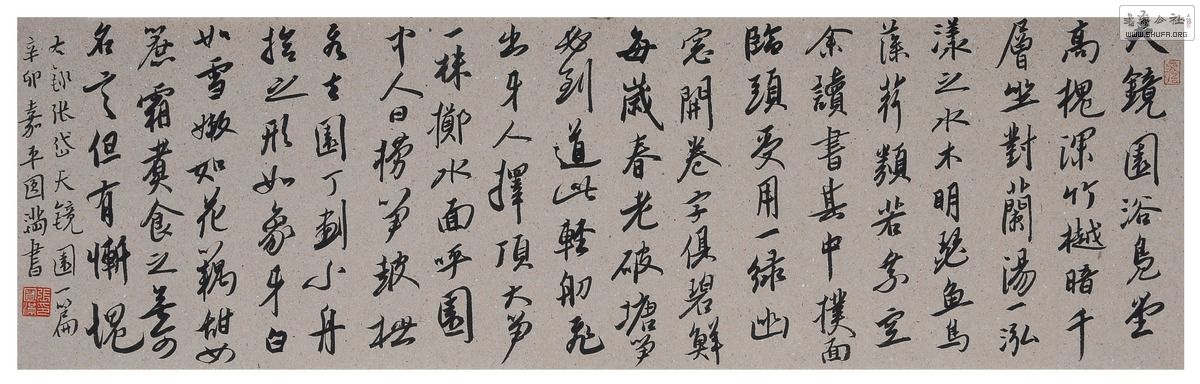 天鏡園浴凫堂
高槐深竹樾暗千
層坐對蘭湯一泓
漾之水木明瑟魚鳥
藻荇類若乘空
余讀書其中撲面
臨頭受用一緑幽
窓開卷字俱碧鮮
每歲春老破塘笋
必到道此輕舠飛
出牙人擇頂大笋
一株擲水面呼園
中人曰撈笋鼓枻
飛去園丁劃小舟
拾之形如象牙白
如雪嫩如花藕甜如
蔗霜煮食之無可
名言但有慚愧
右録张岱天镜園一篇
辛卯嘉平國满書
书法公社
WWW.SHUFA.ORG